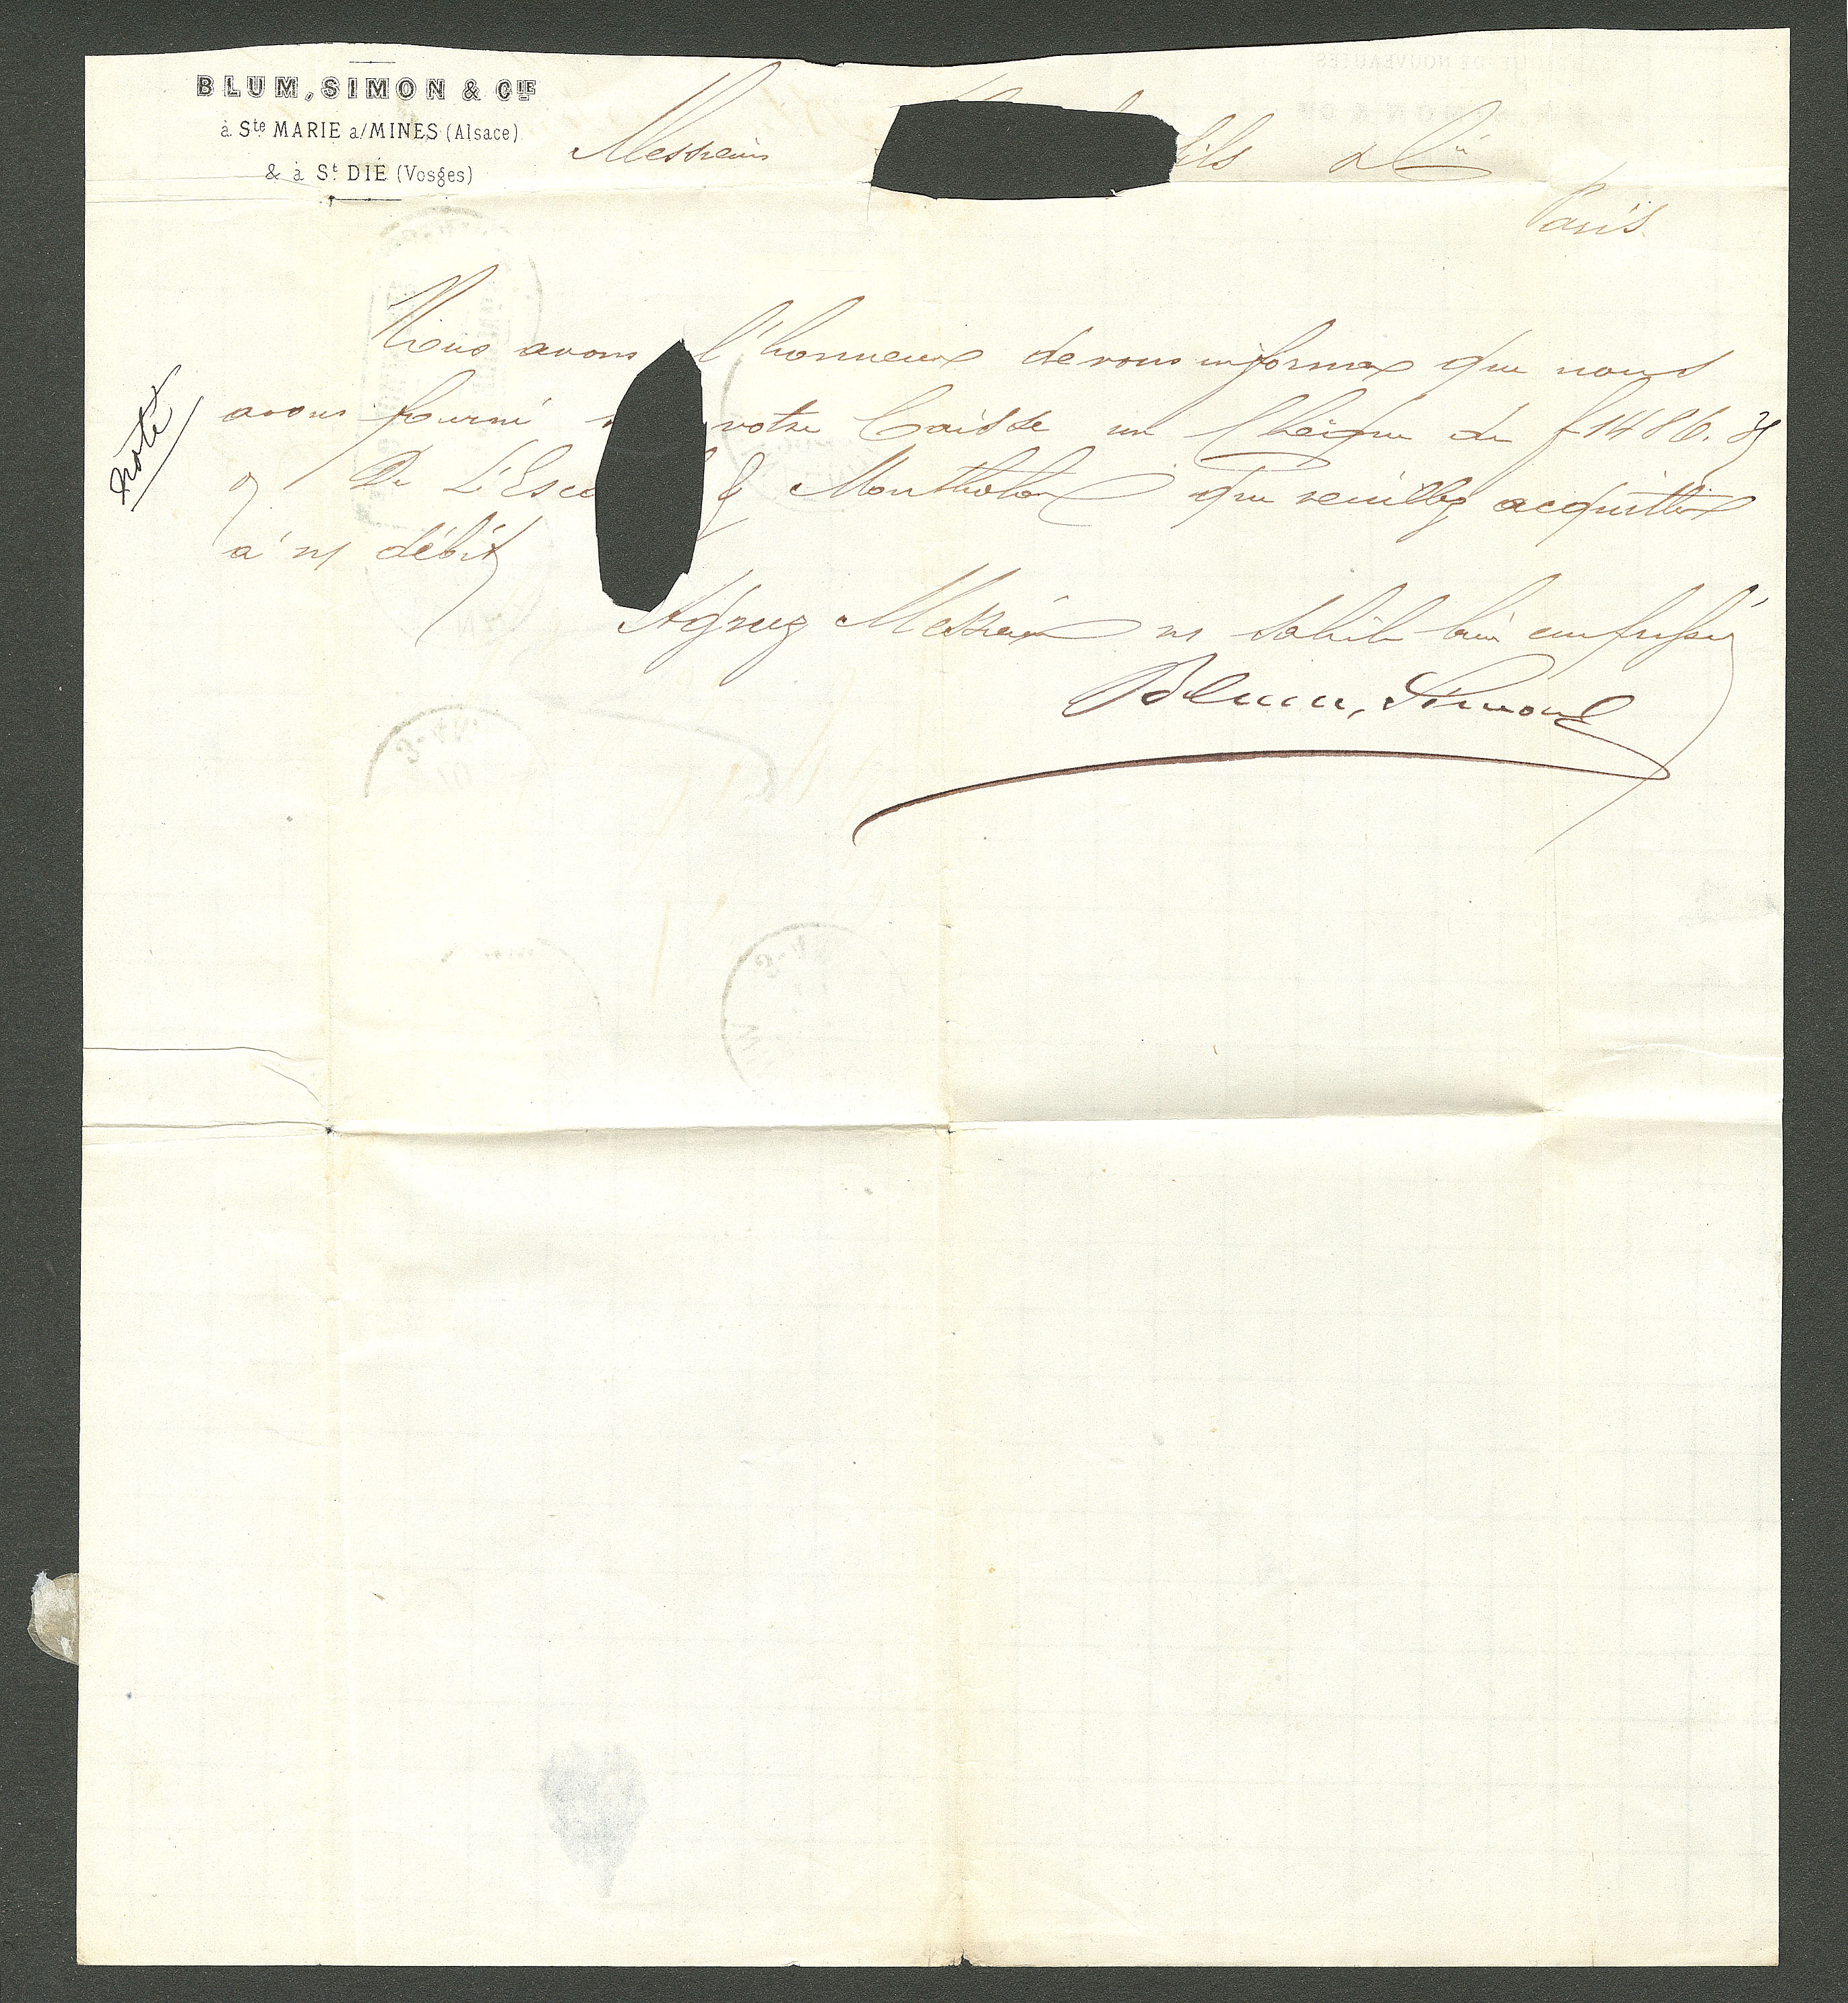 BLUM, SIMON & CIE
à Ste MARIE a/MINES (Alsace)
& à St DIÉ (Vosges)
Messieurs fils & Cie
Paris
Nous avons l'honneur de vous informer que nous
avons fourni votre Caisse un Chèque de f 1486.
De L'Esc & Montholon que veuillez acquitter
à n/ débit
noté
Agréez Messieurs ns salut bien empressés
Blum, Simon